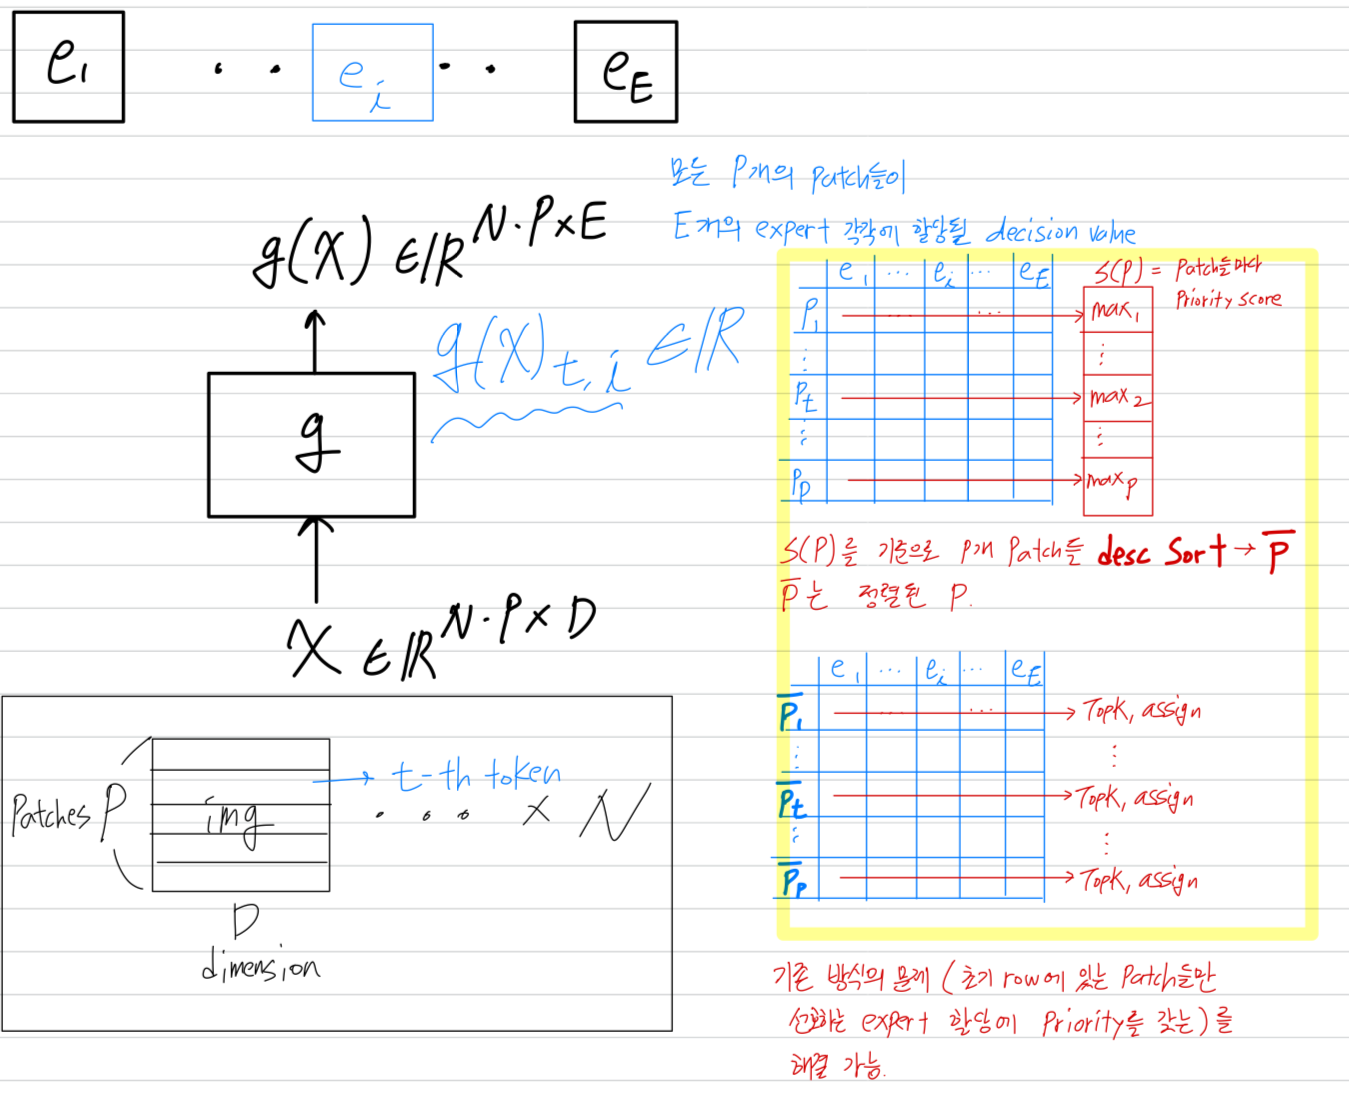 e₁ · · e_i · · e_E
모든 P개의 patch들이
E개의 expert 각각에 할당될 decision value
g(X) ∈ ℝ^{N·P×E}
g(X)_{t,i} ∈ ℝ
g
X ∈ ℝ^{N·P×D}
e₁ ⋯ e_i ⋯ e_E
S(P) = Patch들마다
Priority score
P₁ ⋯ ⋯ max₁
⋮ ⋮
P_t max₂
⋮ ⋮
P_P max_P
S(P)를 기준으로 P개 Patch들 desc Sort → P̅
P̅는 정렬된 P.
e₁ ⋯ e_i ⋯ e_E
P̅₁ ⋯ ⋯ Topk, assign
⋮ ⋮
P̅_t Topk, assign
⋮ ⋮
P̅_P Topk, assign
t-th token
Patches P img · · · × N
D
dimension
기존 방식의 문제 (초기 row에 있는 Patch들만
선호하는 expert 할당에 Priority를 갖는)를
해결 가능.